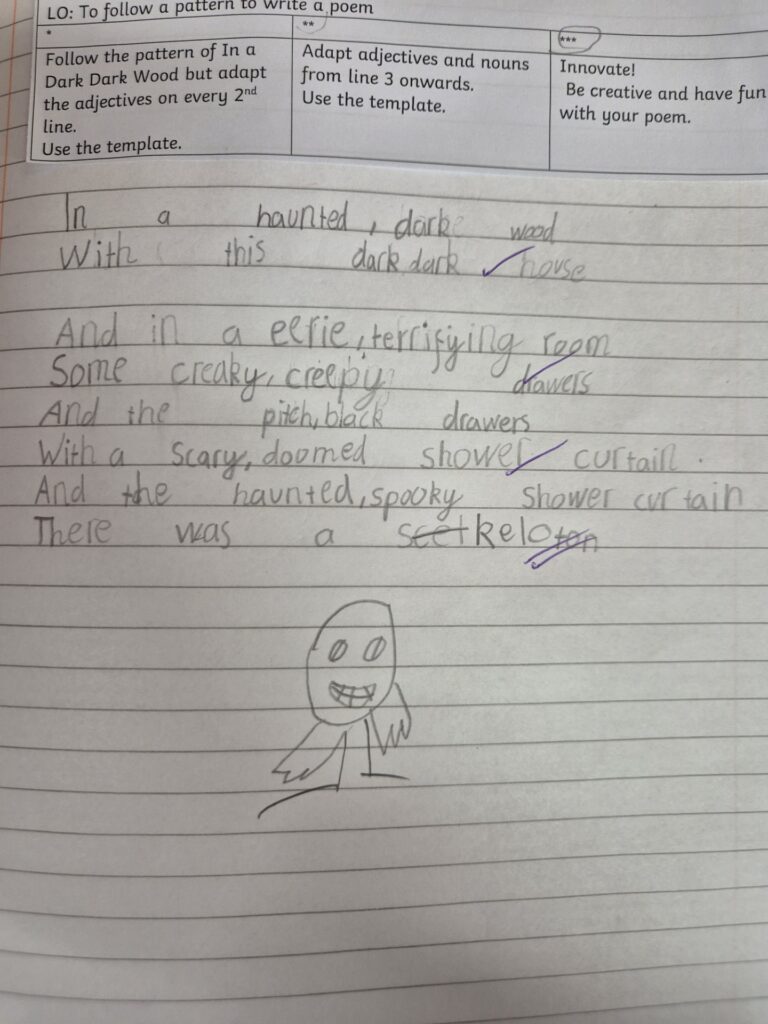 LO: To follow a pattern to write a poem
*
Follow the pattern of In a
Dark Dark Wood but adapt
the adjectives on every 2nd
line.
Use the template.
**
Adapt adjectives and nouns
from line 3 onwards.
Use the template.
***
Innovate!
Be creative and have fun
with your poem.
In a haunted, dark wood
With this dark dark house
And in a eerie, terrifying room
Some creaky, creepy drawers
And the pitch, black drawers
With a scary, doomed shower curtain.
And the haunted, spooky shower curtain
There was a skeloton